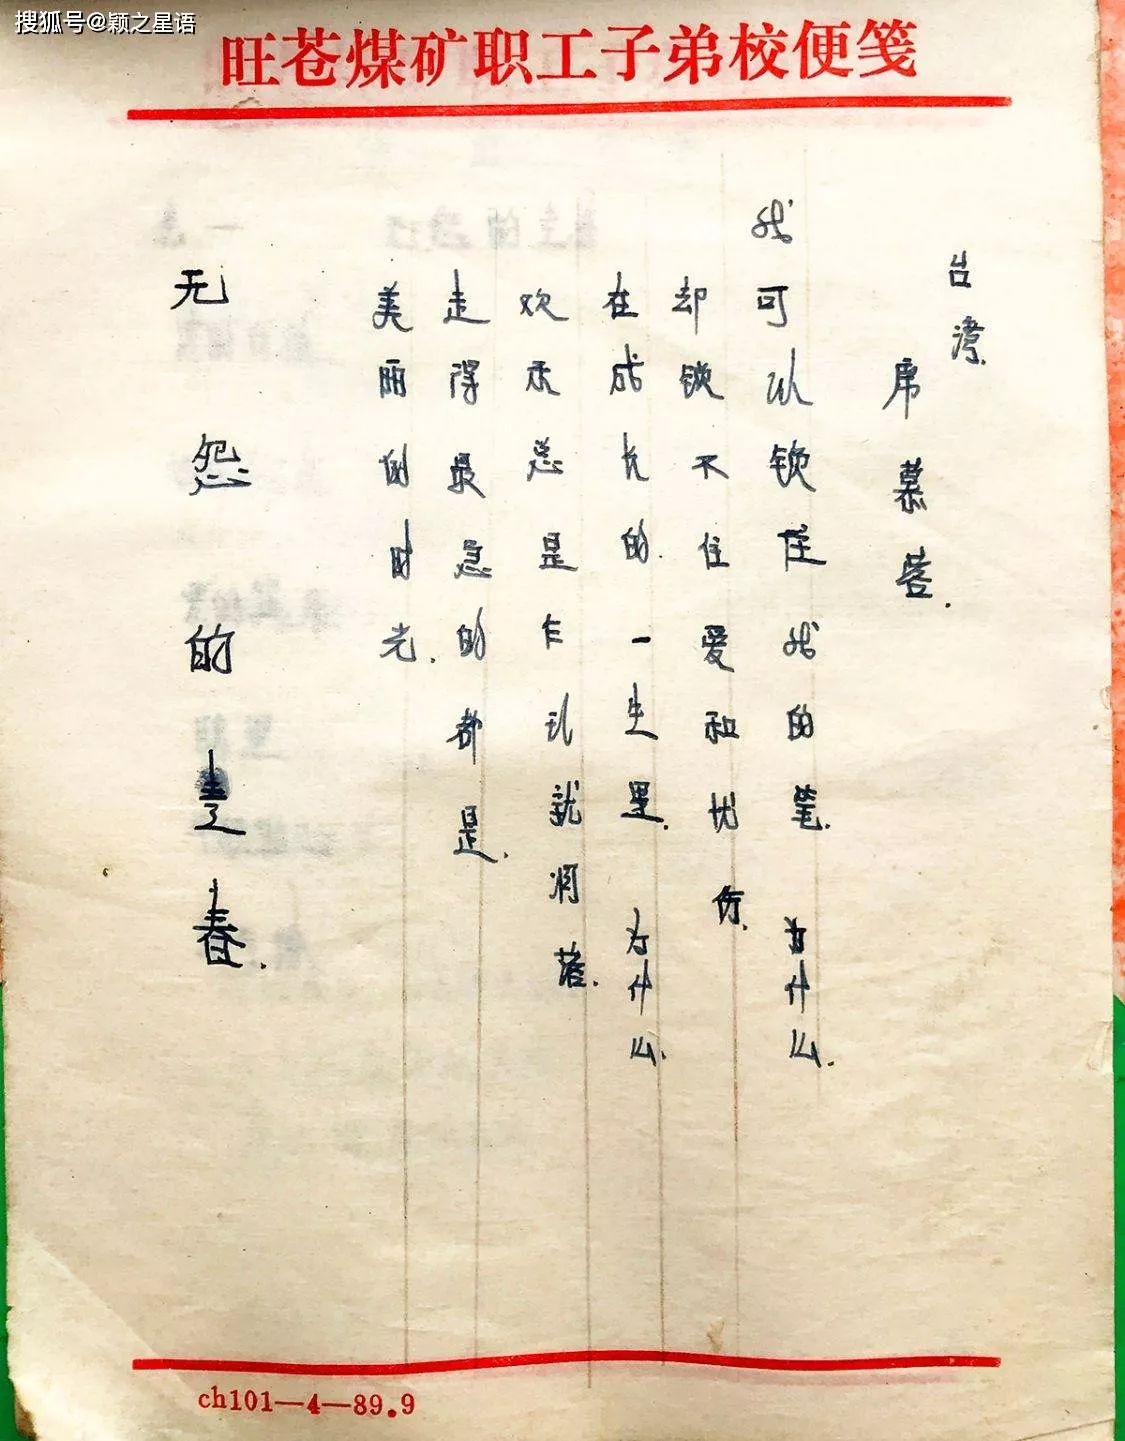 搜狐号@颖之星语
旺苍煤矿职工子弟校便笺
台湾.
席慕蓉.
我可以锁住我的笔.为什么.
却锁不住爱和忧伤.
在成长的.一生里.为什么.
欢乐总是乍就凋落.
走得最急的都是.
美丽的时光.
无怨的青春.
ch101—4—89.9